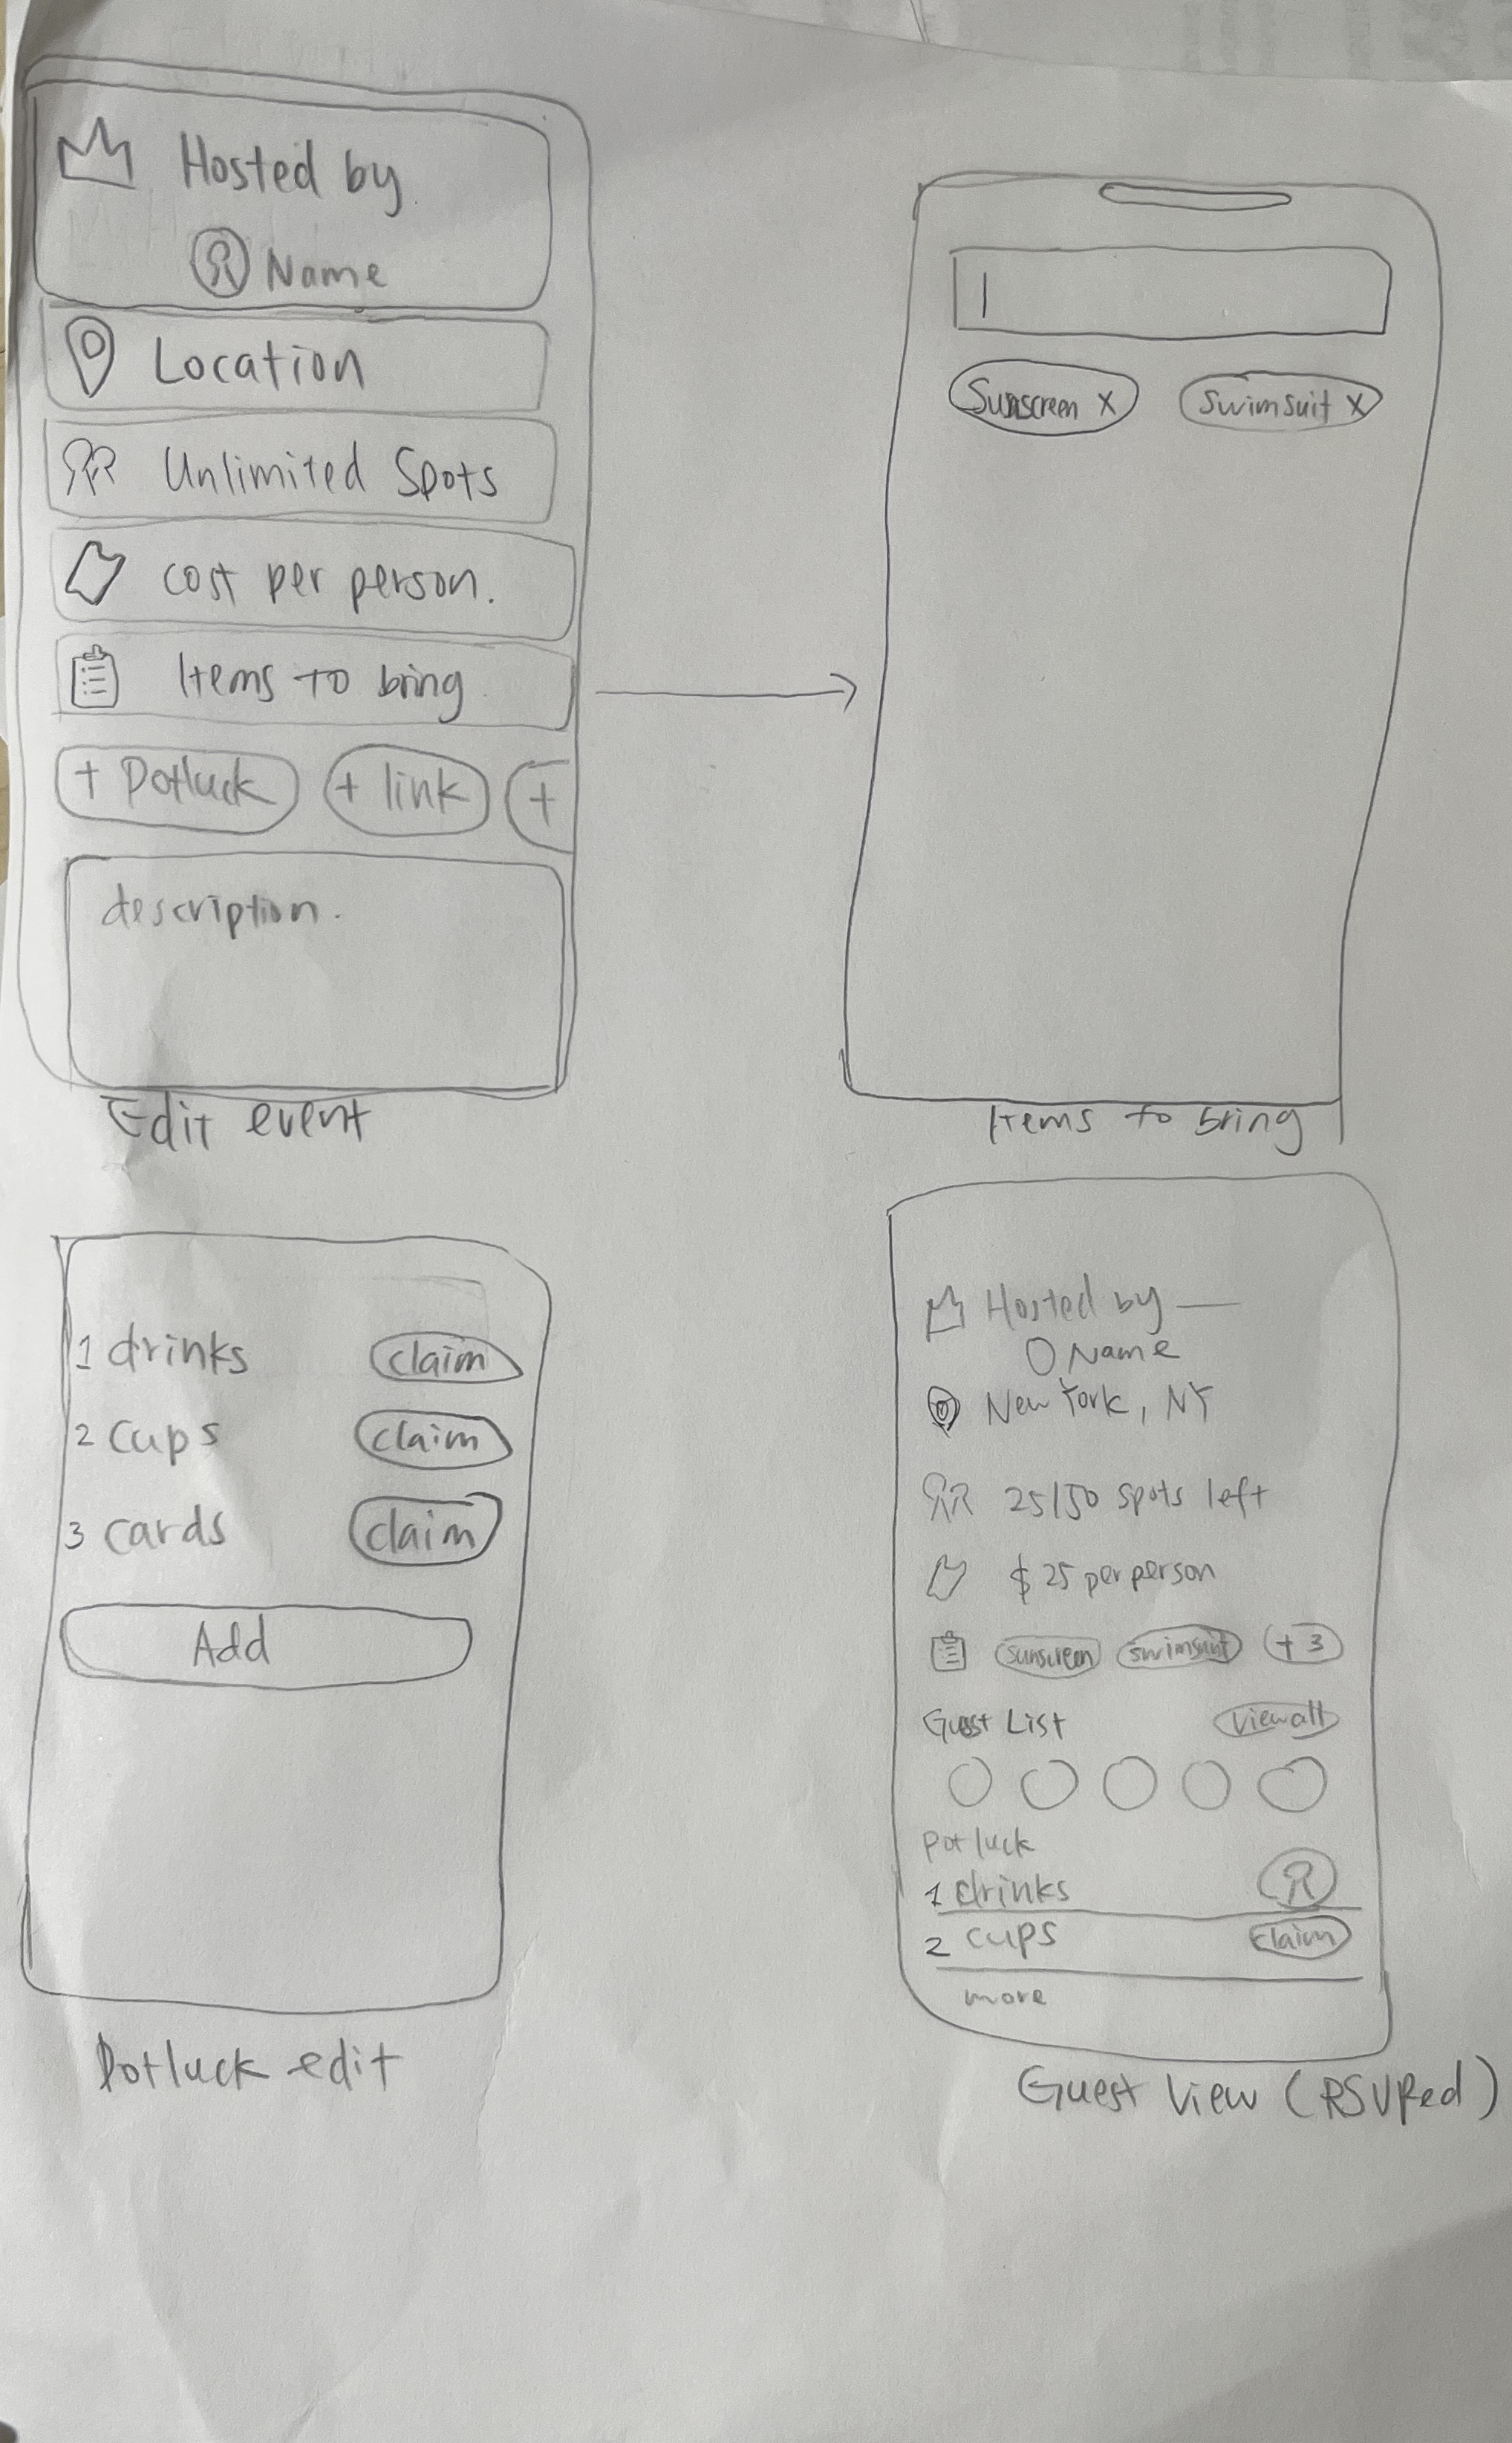 Hosted by
Name
Location
Unlimited Spots
cost per person.
Items to bring
+ Potluck + link +
description.
Edit event
Sunscreen X Swimsuit X
Items to bring
1 drinks claim
2 cups claim
3 cards claim
Add
Potluck edit
Hosted by
Name
New York, NY
25/50 spots left
$25 per person
sunscreen swimsuit +3
Guest List View all
Potluck
1 drinks
2 cups claim
more
Guest View (RSVPed)